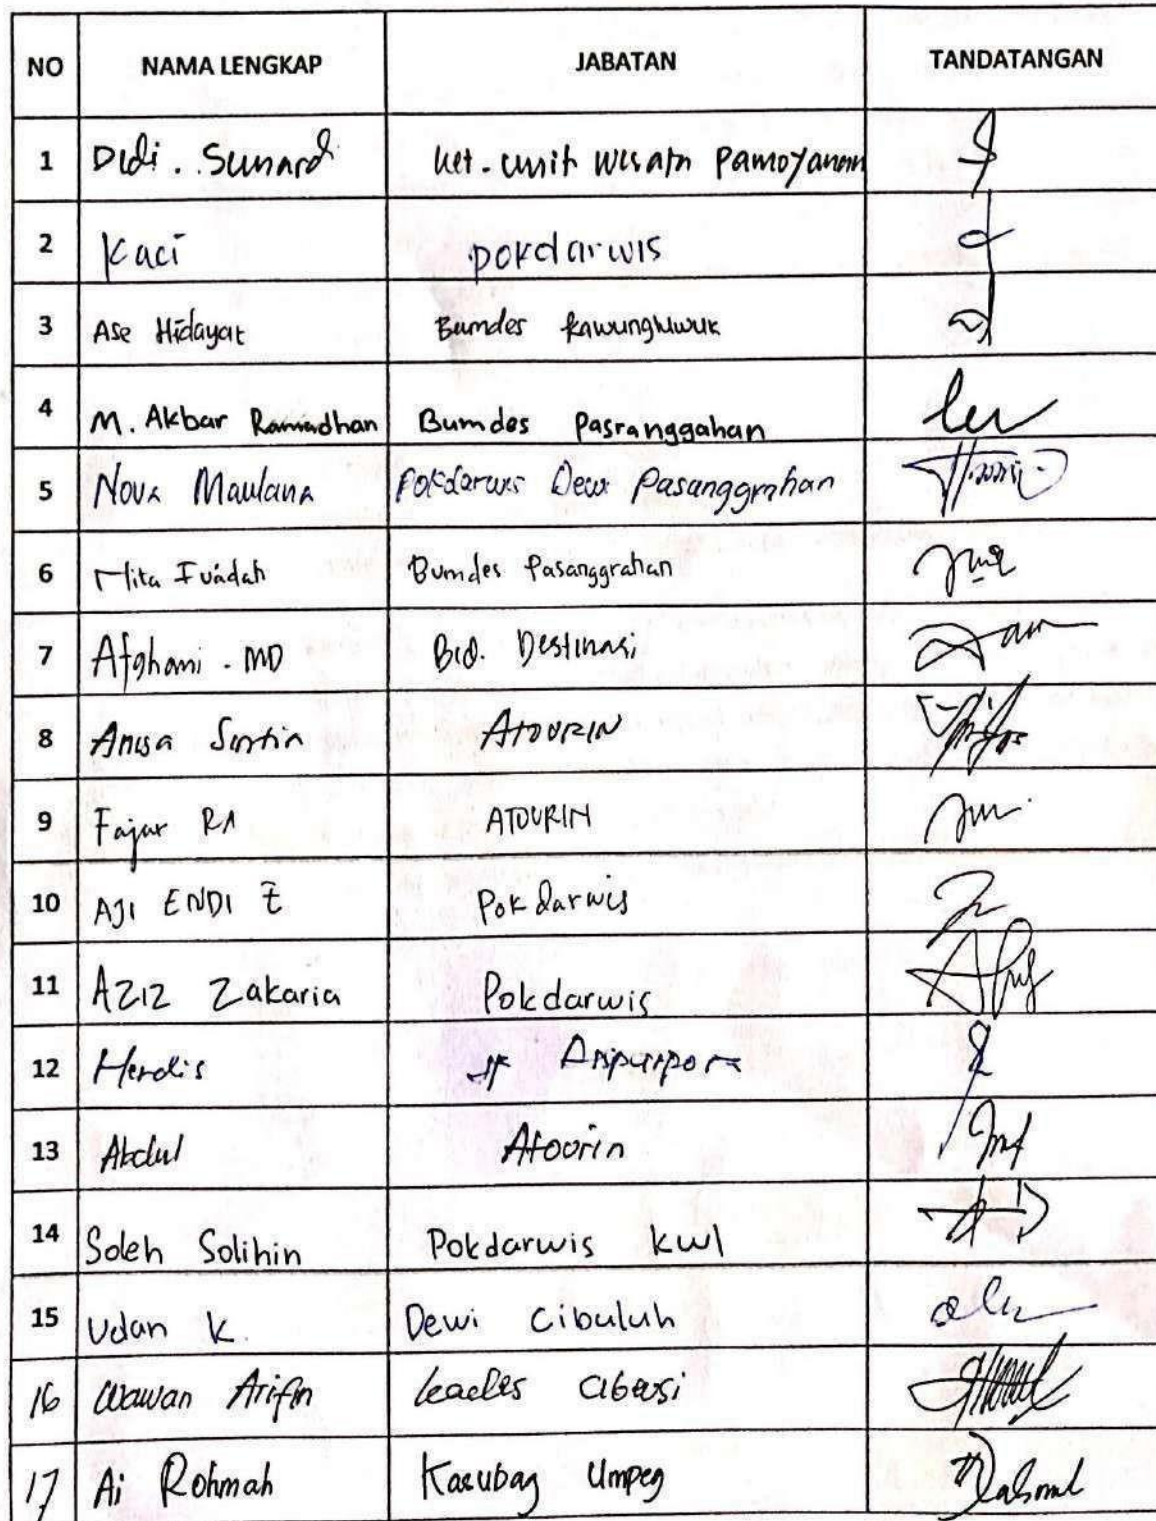 NO NAMA LENGKAP JABATAN TANDATANGAN
1 Didi . Sunardi Ket. unit wisata Pamoyanan
2 Kaci pokdarwis
3 Ase Hidayat Bumdes Kawungluwuk
4 M. Akbar Ramadhan Bumdes Pasranggahan
5 Nova Maulana Pokdarwis Dewi Pasanggrahan
6 Mita Fuadah Bumdes Pasanggrahan
7 Afghani . MD Bid. Destinasi
8 Anisa ATOURIN
9 Fajar RA ATOURIN
10 AJI ENDI Z Pokdarwis
11 AZIZ Zakaria Pokdarwis
12 Herdis
13 Abdul Atoorin
14 Soleh Solihin Pokdarwis kwl
15 Udan K. Dewi Cibuluh
16 Wawan Arifin kades Cibeusi
17 Ai Rohmah Kasubag Umpeg